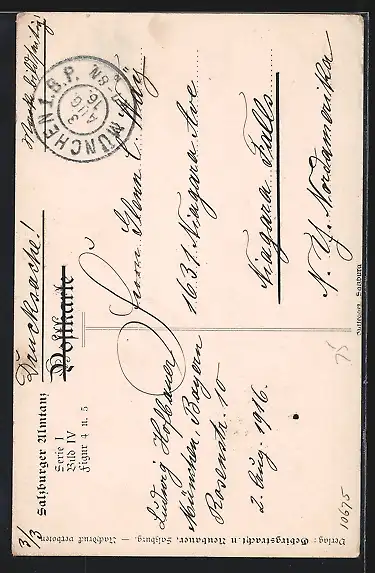 Drucksache!
Marke bildseitig
Salzburger Umtanz
Serie I
Bild IV
Figur 4 u. 5
Postkarte
MÜNCHEN 1. B.P.
3 AUG 16.
N8-9
Ludwig Hofbauer
München Bayern
Rosenstr. 10
2. Aug. 1916.
Herrn Glenn C. Foley
1631 Niagara Ave
Niagara Falls
N. Y. Nordamerika
Verlag: Gebirgstracht u. Neubauer, Salzburg. — Nachdruck verboten.
3/3
75
10675